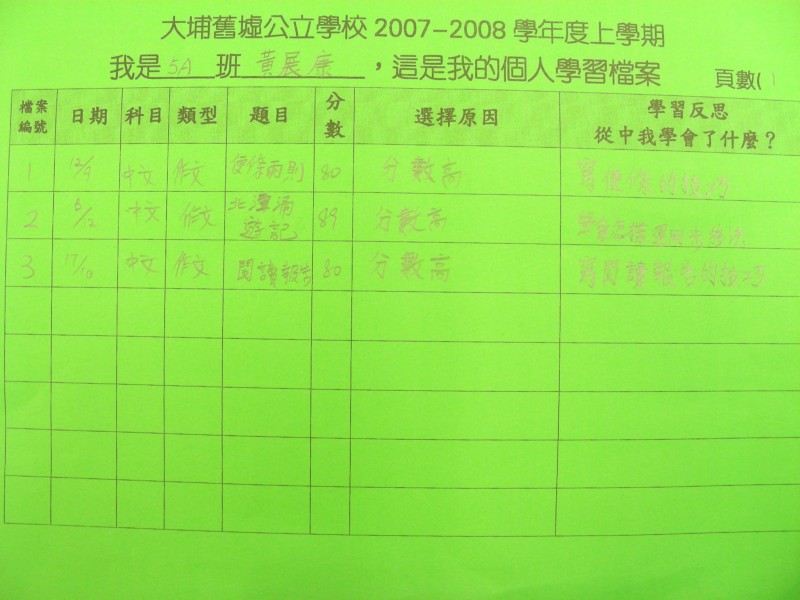 大埔舊墟公立學校 2007-2008 學年度上學期
我是 5A 班 黃展康 ，這是我的個人學習檔案 頁數( 1
檔案編號 日期 科目 類型 題目 分數 選擇原因 學習反思 從中我學會了什麼？
1 12/9 中文 作文 便條兩則 80 分數高 寫便條的技巧
2 5/12 中文 作文 北潭涌遊記 89 分數高
3 17/10 中文 作文 閱讀報告 80 分數高 寫閱讀報告的技巧